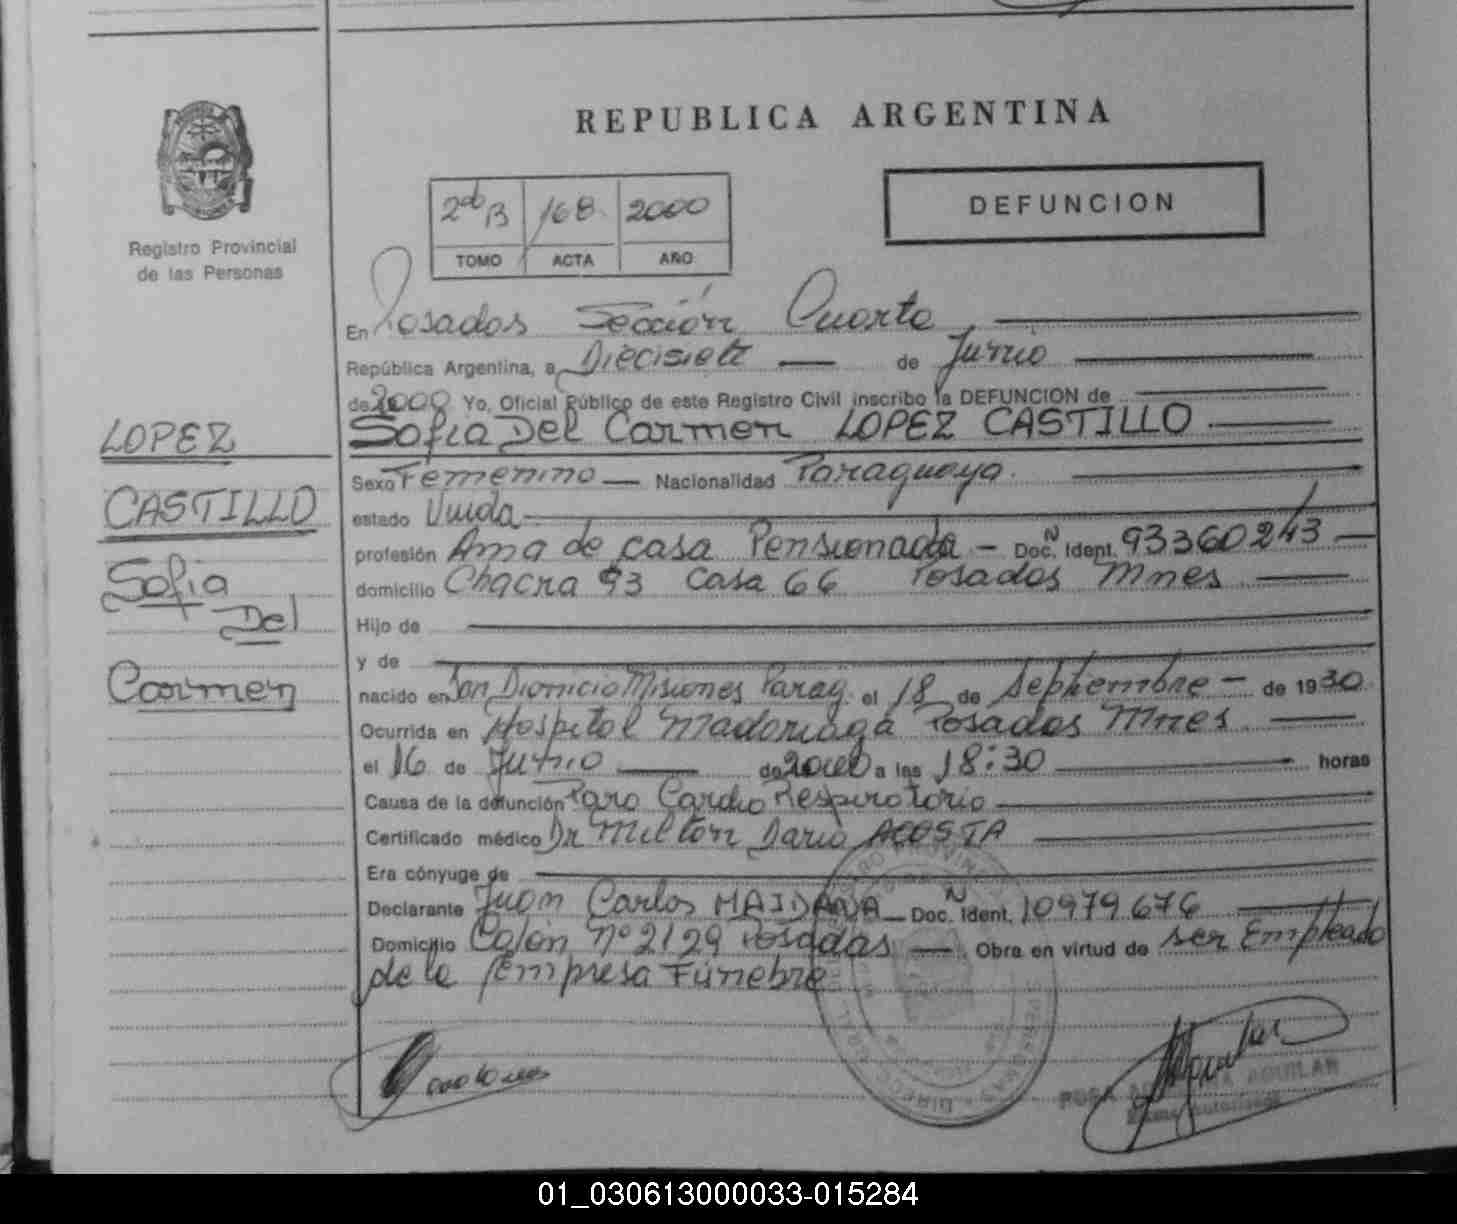 REPUBLICA ARGENTINA
Registro Provincial
de las Personas
2do B 168 2000
TOMO ACTA AÑO
DEFUNCION
En Posadas Sección Cuarta
República Argentina, a Diecisiete de Junio
de 2000 Yo, Oficial Público de este Registro Civil inscribo la DEFUNCION de
Sofia Del Carmen LOPEZ CASTILLO
LOPEZ
CASTILLO
Sofia
Del
Carmen
Sexo Femenino Nacionalidad Paraguaya.
estado Viuda
profesión Ama de casa Pensionada - Doc. Ident. N 93360243
domicilio Chacra 93 Casa 66 Posadas Mnes
Hijo de
y de
nacido en San Dionicio Misiones Parag. el 18 de Septiembre - de 1930
Ocurrida en Hospital Madariaga Posadas Mnes
el 16 de Junio de 2000 a las 18:30 horas
Causa de la defunción Paro Cardio Respiratorio
Certificado médico Dr Milton Dario ACOSTA
Era cónyuge de
Declarante Juan Carlos MAIDANA Doc. Ident. N 10979676
Domicilio Colón nº 2129 Posadas Obra en virtud de ser Empleado
de la Empresa Fúnebre
AGUILAR
01_030613000033-015284